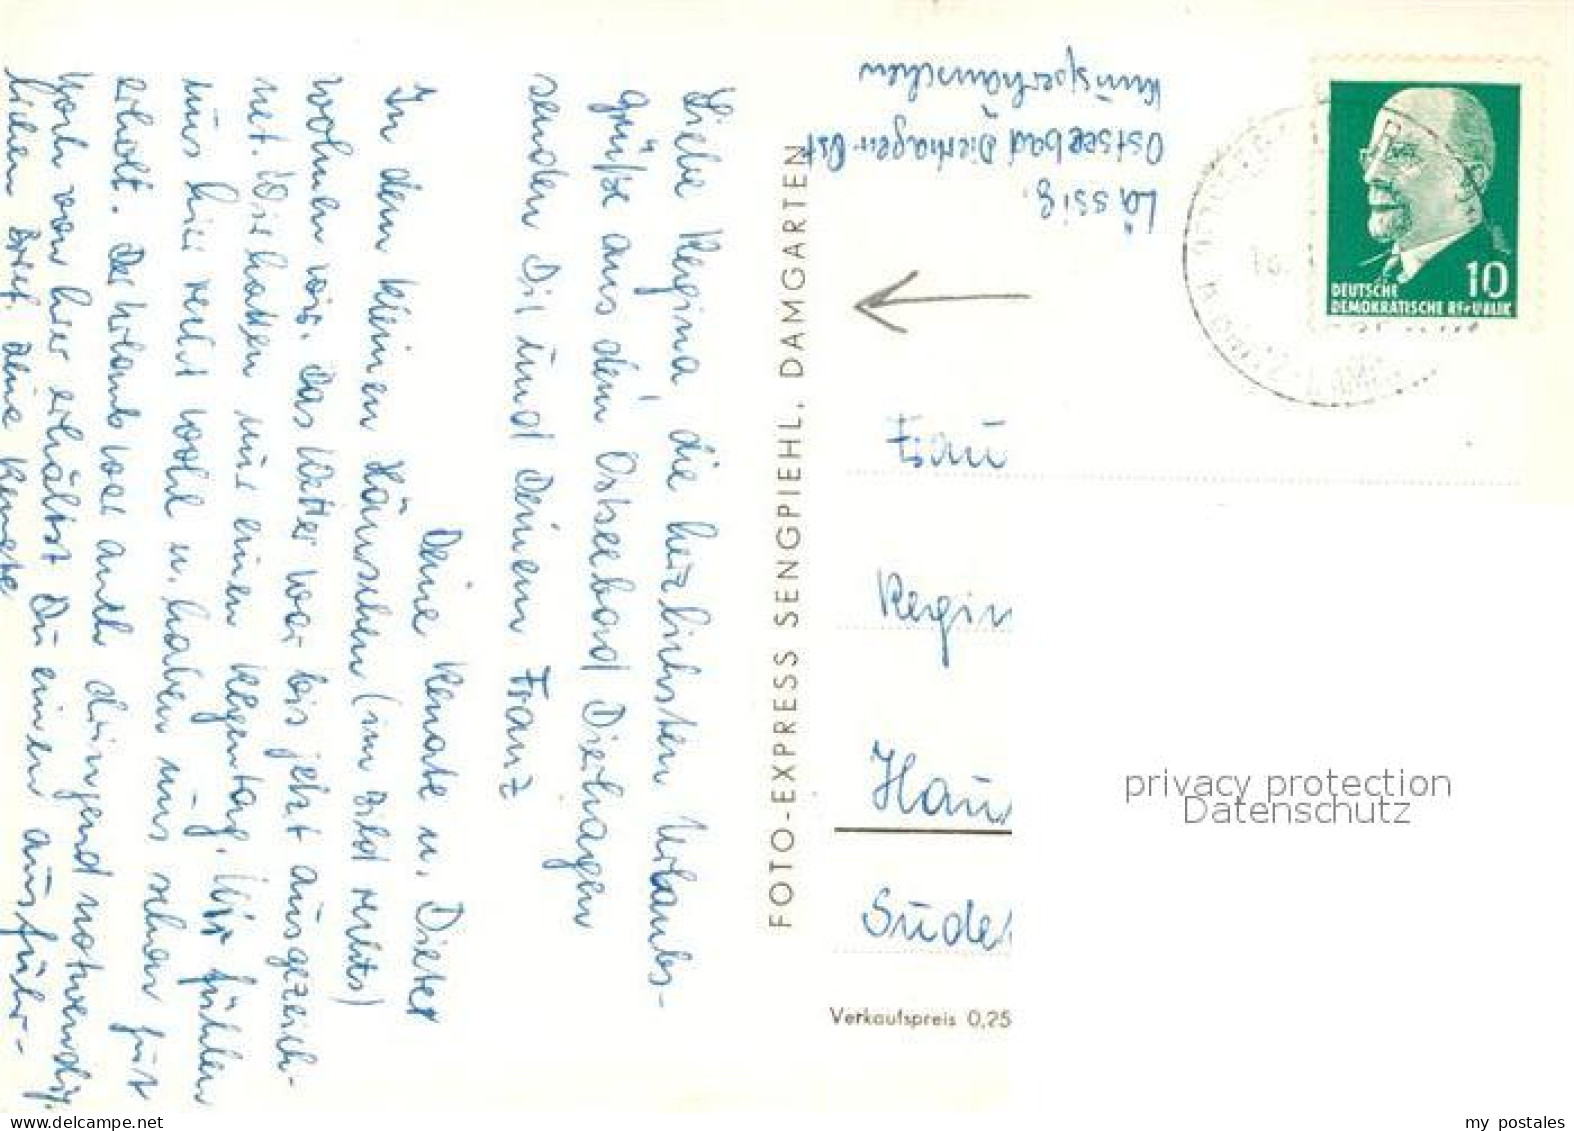 Liebe Regina, die herzlichsten Urlaubs-
grüße aus dem Ostseebad Dierhagen
senden Dir und Deinem Franz
Deine Renate u. Dieter
In dem kleinen Häuschen (im Bild rechts)
wohnen wir. Das Wetter war bis jetzt ausgezeich-
net. Wir hatten nur einen Regentag. Wir fühlen
uns hier recht wohl u. haben uns schon gut
erholt. Der Urlaub war auch dringend notwendig.
Noch von hier erhältst Du einen ausführ-
lichen Brief. Deine Renate
FOTO-EXPRESS SENGPIEHL, DAMGARTEN
Lässig.
Ostseebad Dierhagen Ost
DEUTSCHE
DEMOKRATISCHE REPUBLIK
10
Frau
Regin
Hau
Sude
Verkaufspreis 0,25
privacy protection
Datenschutz
my postales